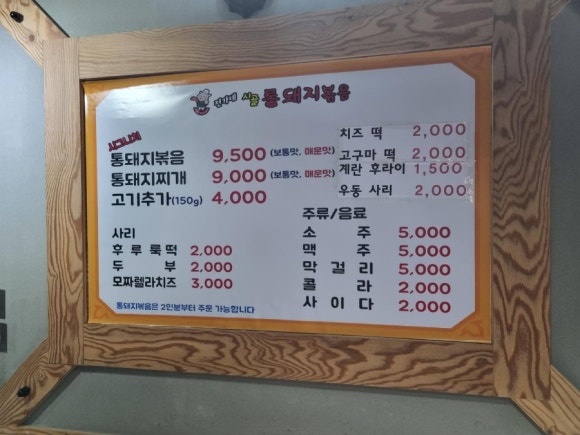 시골 통돼지볶음
시그니처
통돼지볶음 9,500 (보통맛, 매운맛)
통돼지찌개 9,000 (보통맛, 매운맛)
고기추가(150g) 4,000
사리
후루룩떡 2,000
두부 2,000
모짜렐라치즈 3,000
통돼지볶음은 2인분부터 주문 가능합니다
치즈 떡 2,000
고구마 떡 2,000
계란 후라이 1,500
우동 사리 2,000
주류/음료
소주 5,000
맥주 5,000
막걸리 5,000
콜라 2,000
사이다 2,000